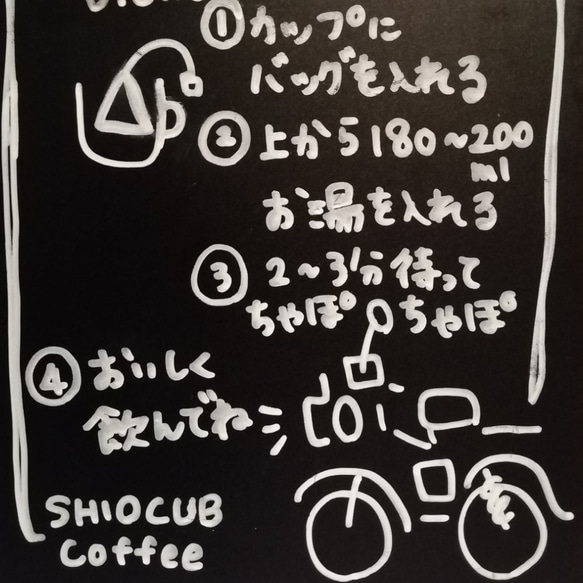 ①カップに
バッグを入れる
②上から180~200
ml
お湯を入れる
③2~3分待って
ちゃぽ° ちゃぽ°
④おいしく
飲んでね
SHIOCUB
Coffee